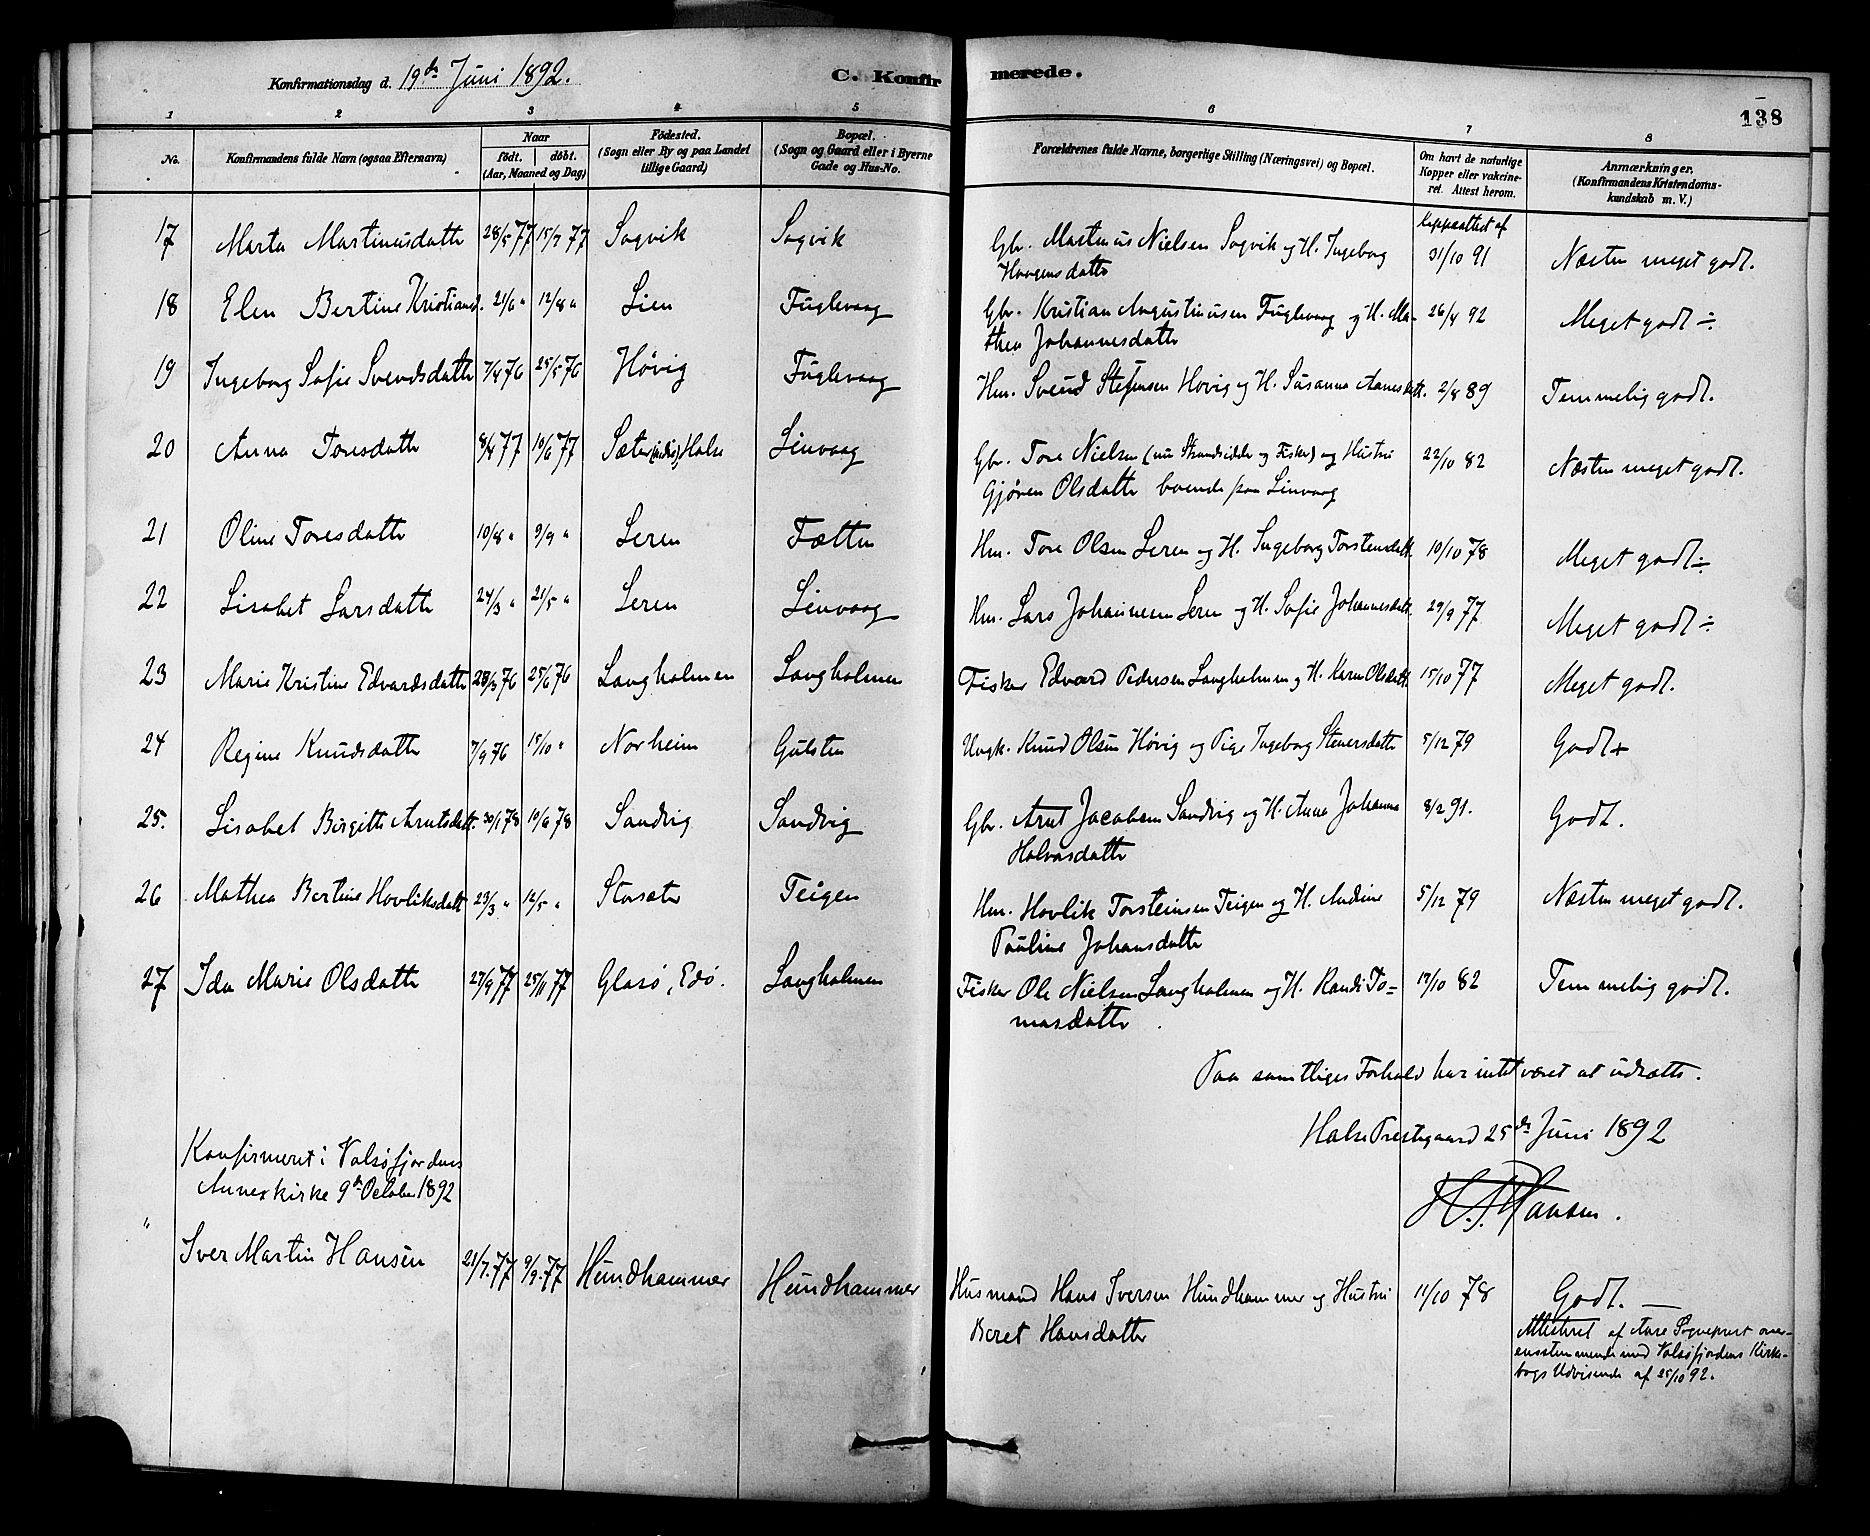 Konfirmationsdag d. 19de Juni 1892. C. Konfirmerede.
138
1 2 3 4 5 6 7 8
No. Konfirmandens fulde Navn (ogsaa Efternavn) Naar født. døbt. (Aar, Maaned og Dag) Fødested. (Sogn eller By og paa Landet tillige Gaard) Bopæl. (Sogn og Gaard eller i Byerne Gade og Hus-No. Forældrenes fulde Navne, borgerlige Stilling (Næringsvei) og Bopæl. Om havt de naturlige Kopper eller vakcineret. Attest herom. Anmærkninger. (Konfirmandens Kristendomskundskab m. V.)
17 Marta Martinusdatter 28/5 77 15/7 77 Sagvik Sagvik Gbr. Martinus Nielsen Sagvik og H. Ingeborg Koppeattest af 31/10 91 Næsten meget godt.
Haagensdatter
18 Elen Bertine Kristiansd. 21/6 " 12/8 " Lien Fuglevaag Gbr. Kristian Augustinusen Fuglevaag og H. Ma- 26/4 92 Meget godt ÷
thea Johannesdatter
19 Ingeborg Sofie Svendsdatter 7/4 76 25/5 76 Høvig Fuglevaag Hm. Svend Steffensen Hovig og H. Susanna Aanesdatt. 2/8 89 Temmelig godt.
20 Anna Toresdatter 8/4 77 10/6 77 Sæter Halse Linvaag Gbr. Tore Nielsen (nu Strandsidder og Fisker) og Hustru 22/10 82 Næsten meget godt.
Gjøren Olsdatter boende paa Linvaag
21 Oline Toresdatter 10/8 " 9/9 " Leren Fætten Hm. Tore Olsen Leren og H. Ingeborg Torstensdatt. 10/10 78 Meget godt ÷
22 Lisabet Larsdatter 24/3 " 21/5 " Leren Linvaag Hm. Lars Johannesen Leren og H. Sofie Johannesdatt. 29/9 77 Meget godt ÷
23 Marie Kristine Edvardsdatter 28/3 76 25/6 76 Langholmen Langholmen Fisker Edvard Pedersen Langholmen og H. Karen Olsdatt. 15/10 77 Meget godt.
24 Regine Knudsdatter 7/9 76 15/10 " Norheim Gulsten Ungk. Knud Olsen Høvig og Pige Ingeborg Steversdatter 5/12 79 Godt +
25. Lisabet Birgitte Arntsdatt. 30/1 78 10/6 78 Sandvig Sandvig Gbr. Arnt Jacobsen Sandvig og H. Anne Johanna 8/2 91. Godt.
Halvorsdatter
26 Mathea Bertine Hovliksdatt 23/3 " 12/5 " Storsæter Teigen Hm. Hovlik Torsteinsen Teigen og H. Andrine 5/12 79 Næsten meget godt.
Pauline Johansdatter
27 Ida Marie Olsdatter 27/9 77 25/11 77 Glasø, Edø. Langholmen Fisker Ole Nielsen Langholmen og H. Randi To= 17/10 82 Temmelig godt.
masdatter
Paa samtliges Forhold har intet været at udsætte.
Halse Prestegaard 25de Juni 1892
Hansen.
Konfirmeret i Valsøfjordens
Annexkirke 9de October 1892
" Iver Martin Hansen 21/7. 77 9/9. 77 Hundhammer Hundhammer Husmand Hans Iversen Hundhammer og Hustru 11/10 78 Godt. —
Beret Hansdatter
Attesteret af Aure Sogneprest over-
ensstemmende med Valsøfjordens Kirke-
bogs Udvisende af 25/10 92.